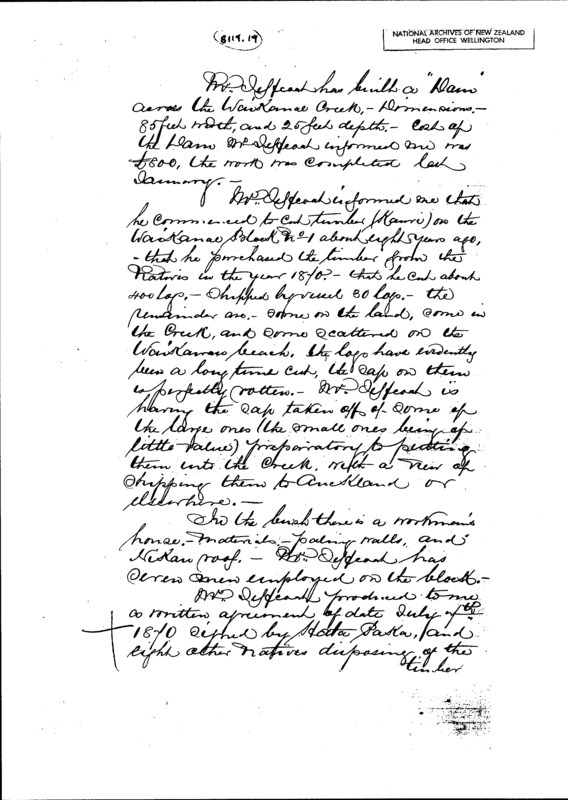 8119.19
NATIONAL ARCHIVES OF NEW ZEALAND
HEAD OFFICE WELLINGTON
Mr. Jeffcoat has built a "Dam"
across the Waikanae Creek, - Dimensions. -
85 feet width, and 25 feet depth. - Cost of
the Dam Mr. Jeffcoat informed me was
£800, the work was completed last
January. -
Mr. Jeffcoat informed me that
he commenced to cut timber (Kauri) on the
Waikanae Block No. 1 about eight years ago,
- that he purchased the timber from the
Natives in the year 1870. - that he cut about
400 logs, - Shipped by vessel 30 logs. - the
remainder are. - some on the land, some in
the Creek, and some scattered on the
Waikanae beach. the logs have evidently
been a long time cut, the sap on them
is perfectly rotten. - Mr. Jeffcoat is
having the sap taken off of some of
the large ones (the small ones being of
little value) preparatory to putting
them into the Creek, with a view of
shipping them to Auckland or
elsewhere. -
In the bush there is a workmen's
house. - Materials - paling walls, and
Nikau roof. - Mr. Jeffcoat has
seven men employed on the block. -
Mr. Jeffcoat produced to me
a written agreement of date July 7th
1870 signed by Paka, and
eight other Natives disposing of the
timber